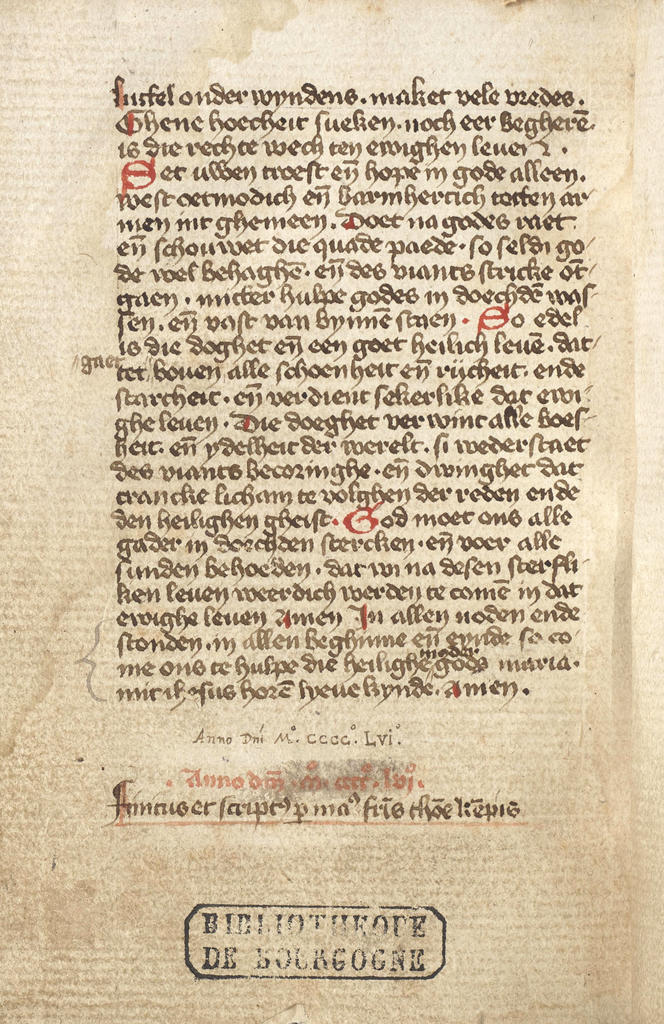 luttel onder wyndens . maket vele vredes .
Ghene hoecheit sueken . noch eer begherē .
is die rechte wech ten ewighen leuen .
Set uwen troest eñ hope in gode alleen .
west oetmodich eñ barmhertich totten ar-
men int ghemeen . Doet na godes raet
eñ schouwet die quade paede . so seldi go-
de wel behaghē . eñ des viants stricke ōt-
gaen . mitter hulpe godes in doechdē was-
sen . eñ vast van bynnē staen . So edel
is die doghet eñ een goet heilich leuē . dat-
gaet
tet bouen alle schoenheit eñ rijcheit . ende
starcheit . eñ verdient sekerlike dat ewi-
ghe leuen . Die doeghet verwint alle boes-
heit . eñ ydelheit der werelt . si wederstaet
des viants becoringhe . eñ dwinghet dat
crancke licham te volghen der reden ende
den heilighen gheist . God moet ons alle
gader in doechden stercken . eñ voer alle
sunden behoeden . dat wi na desen sterfli-
ken leuen weerdich werden te comē in dat
ewighe leuen Amen In allen noden ende
stonden . in allen beghinne eñ eynde so co-
me ons te hulpe die heilighe moder gods maria .
mit ihesus horē lyeue kynde . Amen .
Anno Dnī Mº. CCCCº. LVIº.
. Anno dnī . mº. ccccº. lviº.
finitus et scriptꝰ p manꝰ fr̄is thōe kēpis
BIBLIOTHEQUE
DE BOURGOGNE